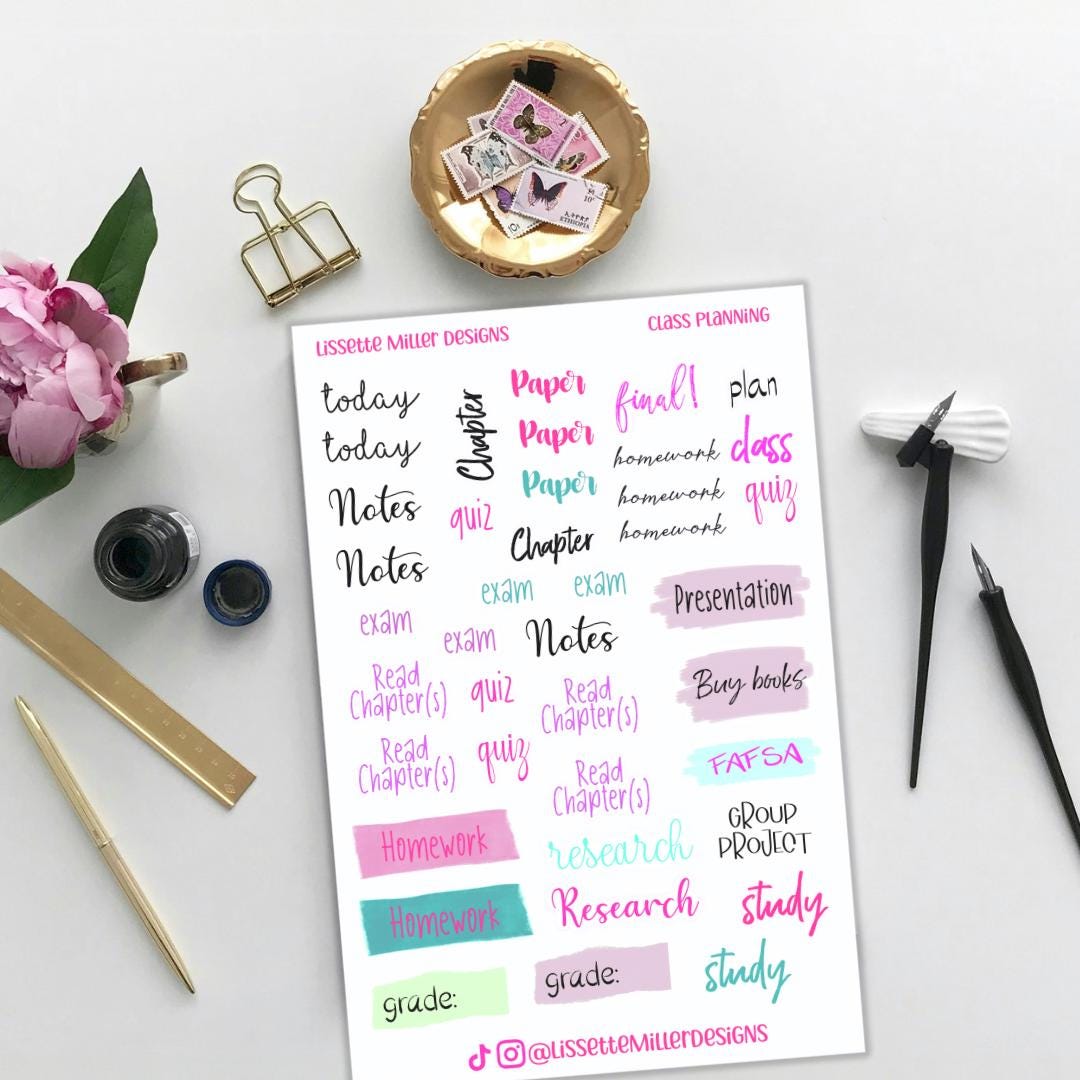 2
10ᶜ
ኢትዮጵያ
ETHIOPIA
Lissette Miller Designs
Class Planning
today
Chapter
Paper
final!
plan
today
Paper
homework
class
Notes
quiz
Paper
homework
quiz
Chapter
homework
Notes
exam
exam
Presentation
exam
exam
Notes
Read
Chapter(s)
quiz
Read
Chapter(s)
Buy books
Read
Chapter(s)
quiz
Read
Chapter(s)
FAFSA
Homework
research
GROUP
PROJECT
Homework
Research
study
grade:
grade:
study
@LissetteMillerDesigns